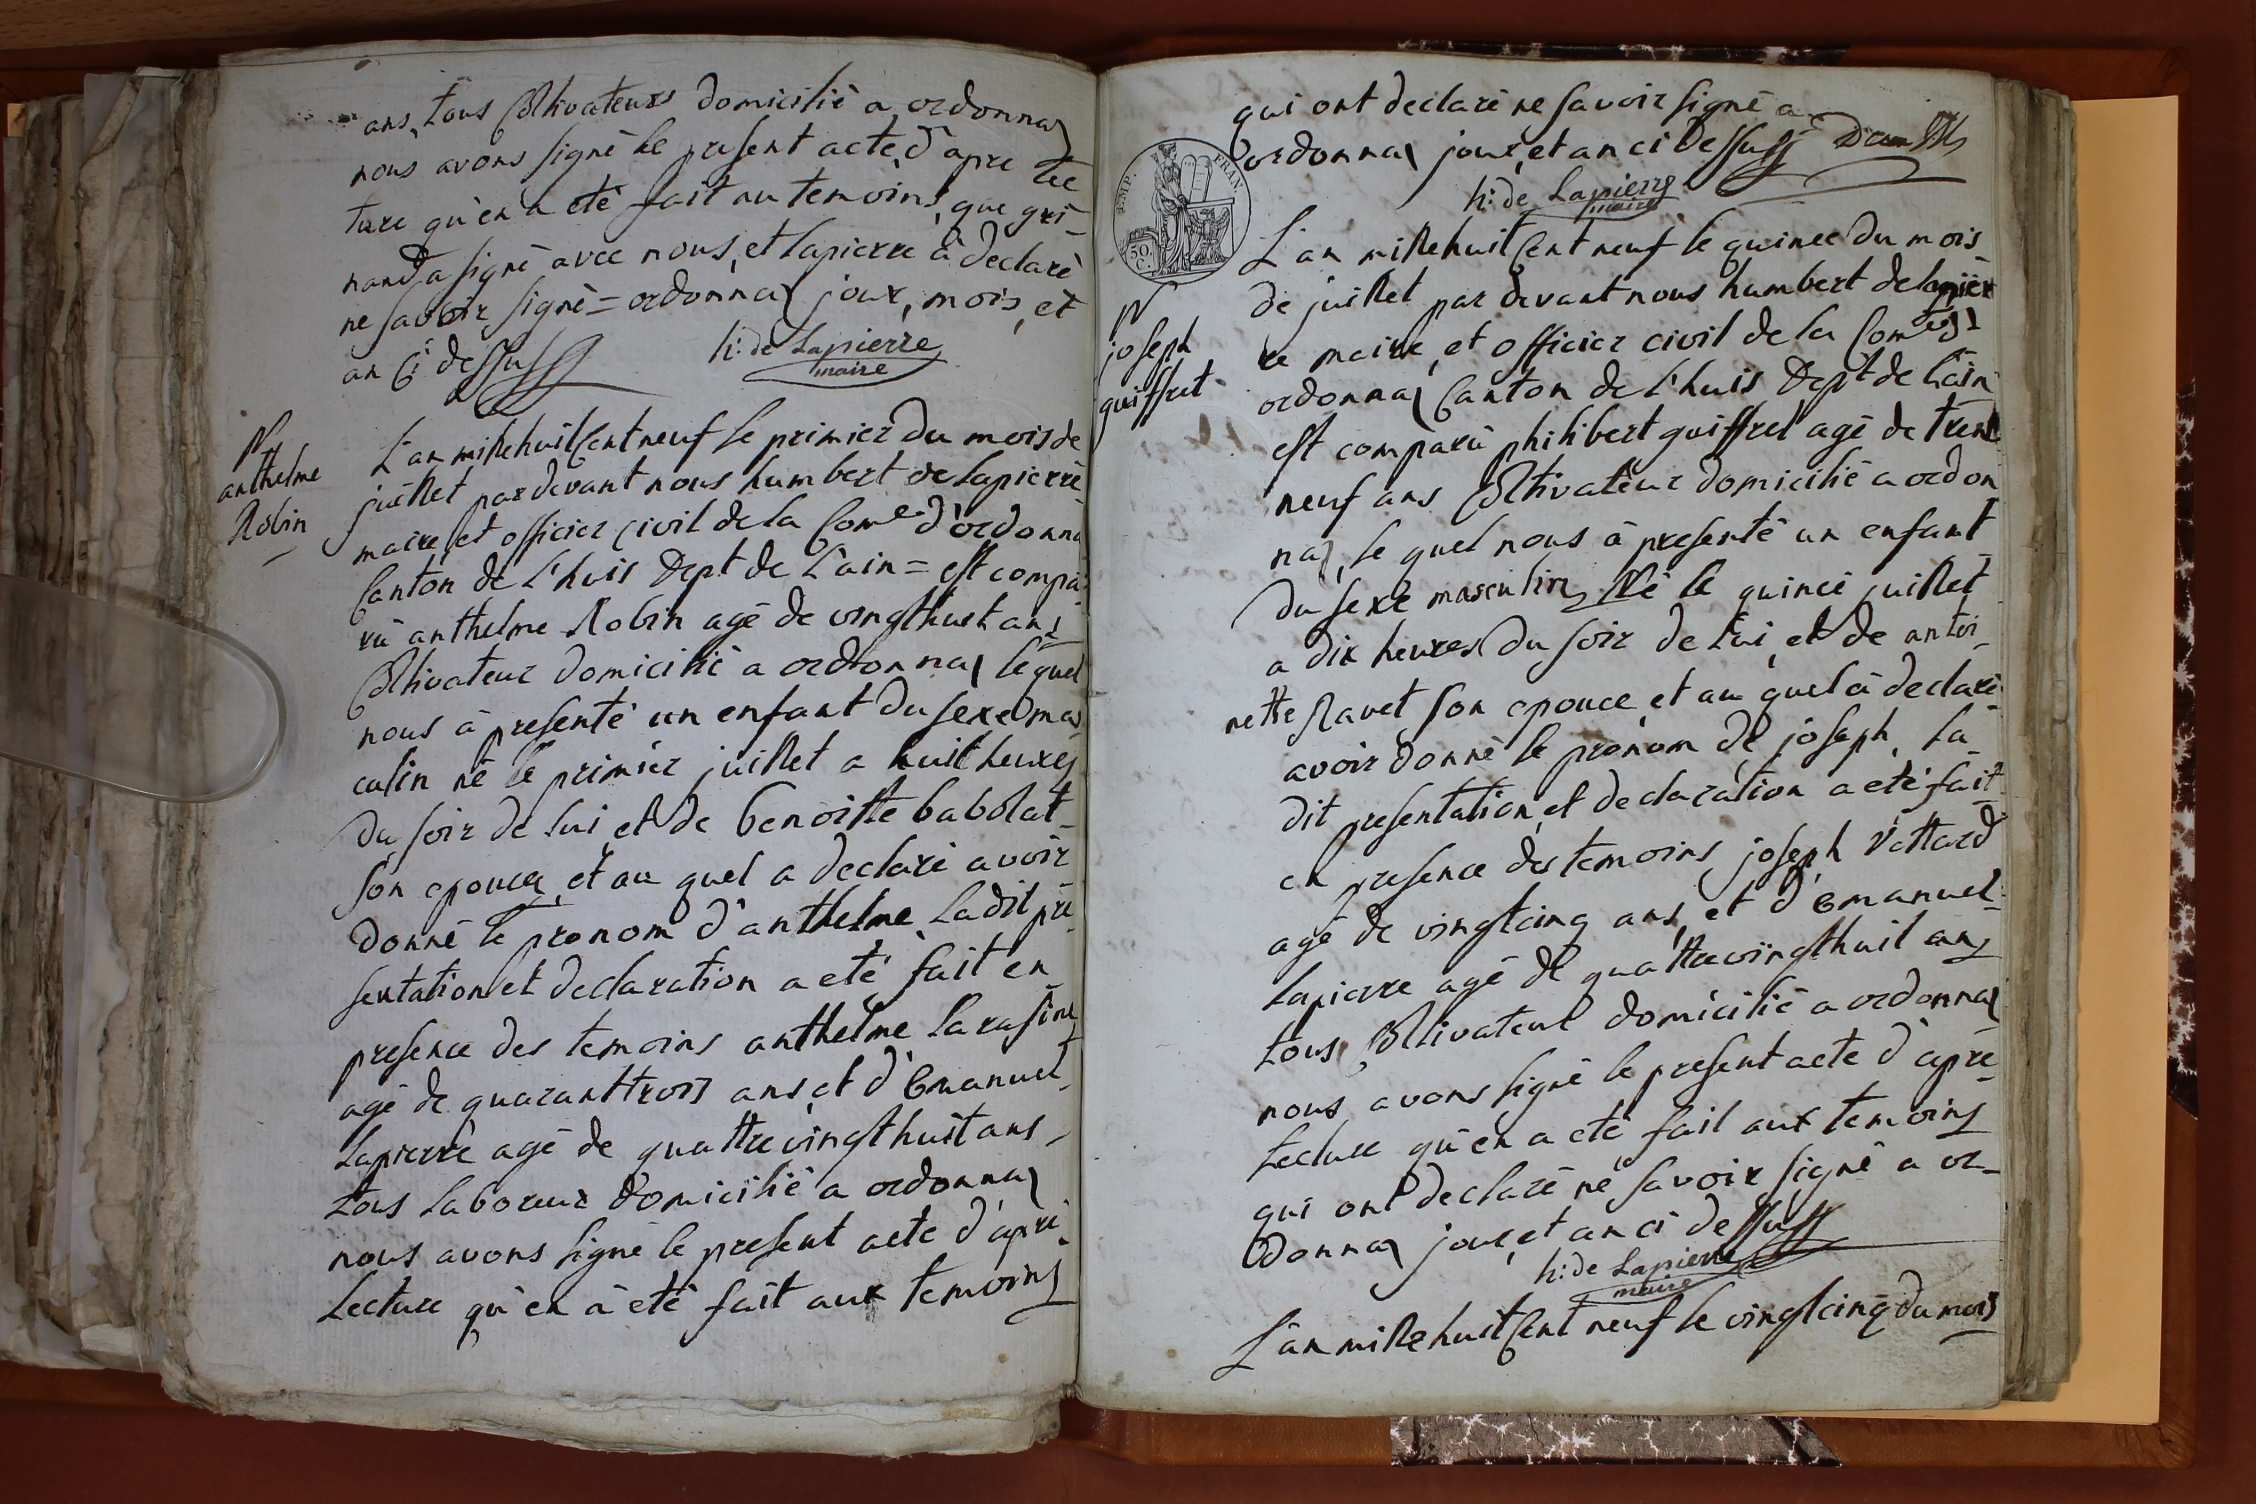 ans, tous Cultivateurs domicilié a ordonnaz
nous avons signé le present acte, d'apre lec
ture qu'en a eté fait au temoins, que gri-
nand a signé avec nous, et lapierre à declaré
ne savoir signé = ordonnaz jour, mois, et
an Ci dessus
h: de Lapierre
maire
N
anthelme
Robin
L'an mille huit Cent neuf le primier du mois de
juillet par devant nous humbert de lapierre
maire et officier civil de la Come d'ordonna
Canton de L'huis Dept de L'ain = est compa-
ru anthelme Robin agé de vingthuit ans
Cultivateur domicilié a ordonnaz lequel
nous à presenté un enfant du sexe mas
culin né le primier juillet a huit heures
du soir de lui et de benoitte babolat
son epouce, et au quel a declaré avoir
donné le pronom d'anthelme Ladit pre-
sentation et declaration a eté fait en
presence des temoins anthelme Larasine
agé de quaranttrois ans et d'Emanuel
Lapierre agé de quattrevingthuit ans
tous Laboreur domicilié a ordonnaz
nous avons signé le present acte d'apré
Lecture qu'en à eté fait aux temoins
qui ont declaré ne savoir signé a
ordonnaz jour, et an ci dessus
h: de Lapierre
maire
EMP. FRAN
50.
C.
N
joseph
guiffret
L'an mille huit Cent neuf le quince du mois
de juillet par devant nous humbert de lapier
re maire, et officier civil de la Comé d
ordonnaz Canton de L'huis Dept de L'ain
est comparu philibert guiffret agé de trent
neuf ans Cultivateur domicilié a ordon
naz, le quel nous à presenté un enfant
du sexe masculin, Né le quince juillet
a dix heures du soir de lui, et de antoi-
nette Ravet son epouce et au quel à declaré
avoir donné le pronom de joseph, La
dit presentation, et declaration a eté fait
en presence des temoins joseph vettard
agé de vingtcinq ans, et d'Emanuel
Lapierre agé de quattrevingthuit ans
tous Cultivateur domicilié a ordonnaz
nous avons signé le present acte d'apré
Lecture qu'en a eté fait aux temoins
qui ont declaré ne savoir signé a or-
donnaz jour, et an ci dessus
h: de Lapierre
maire
L'an mille huit Cent neuf le vingtcinq du mois